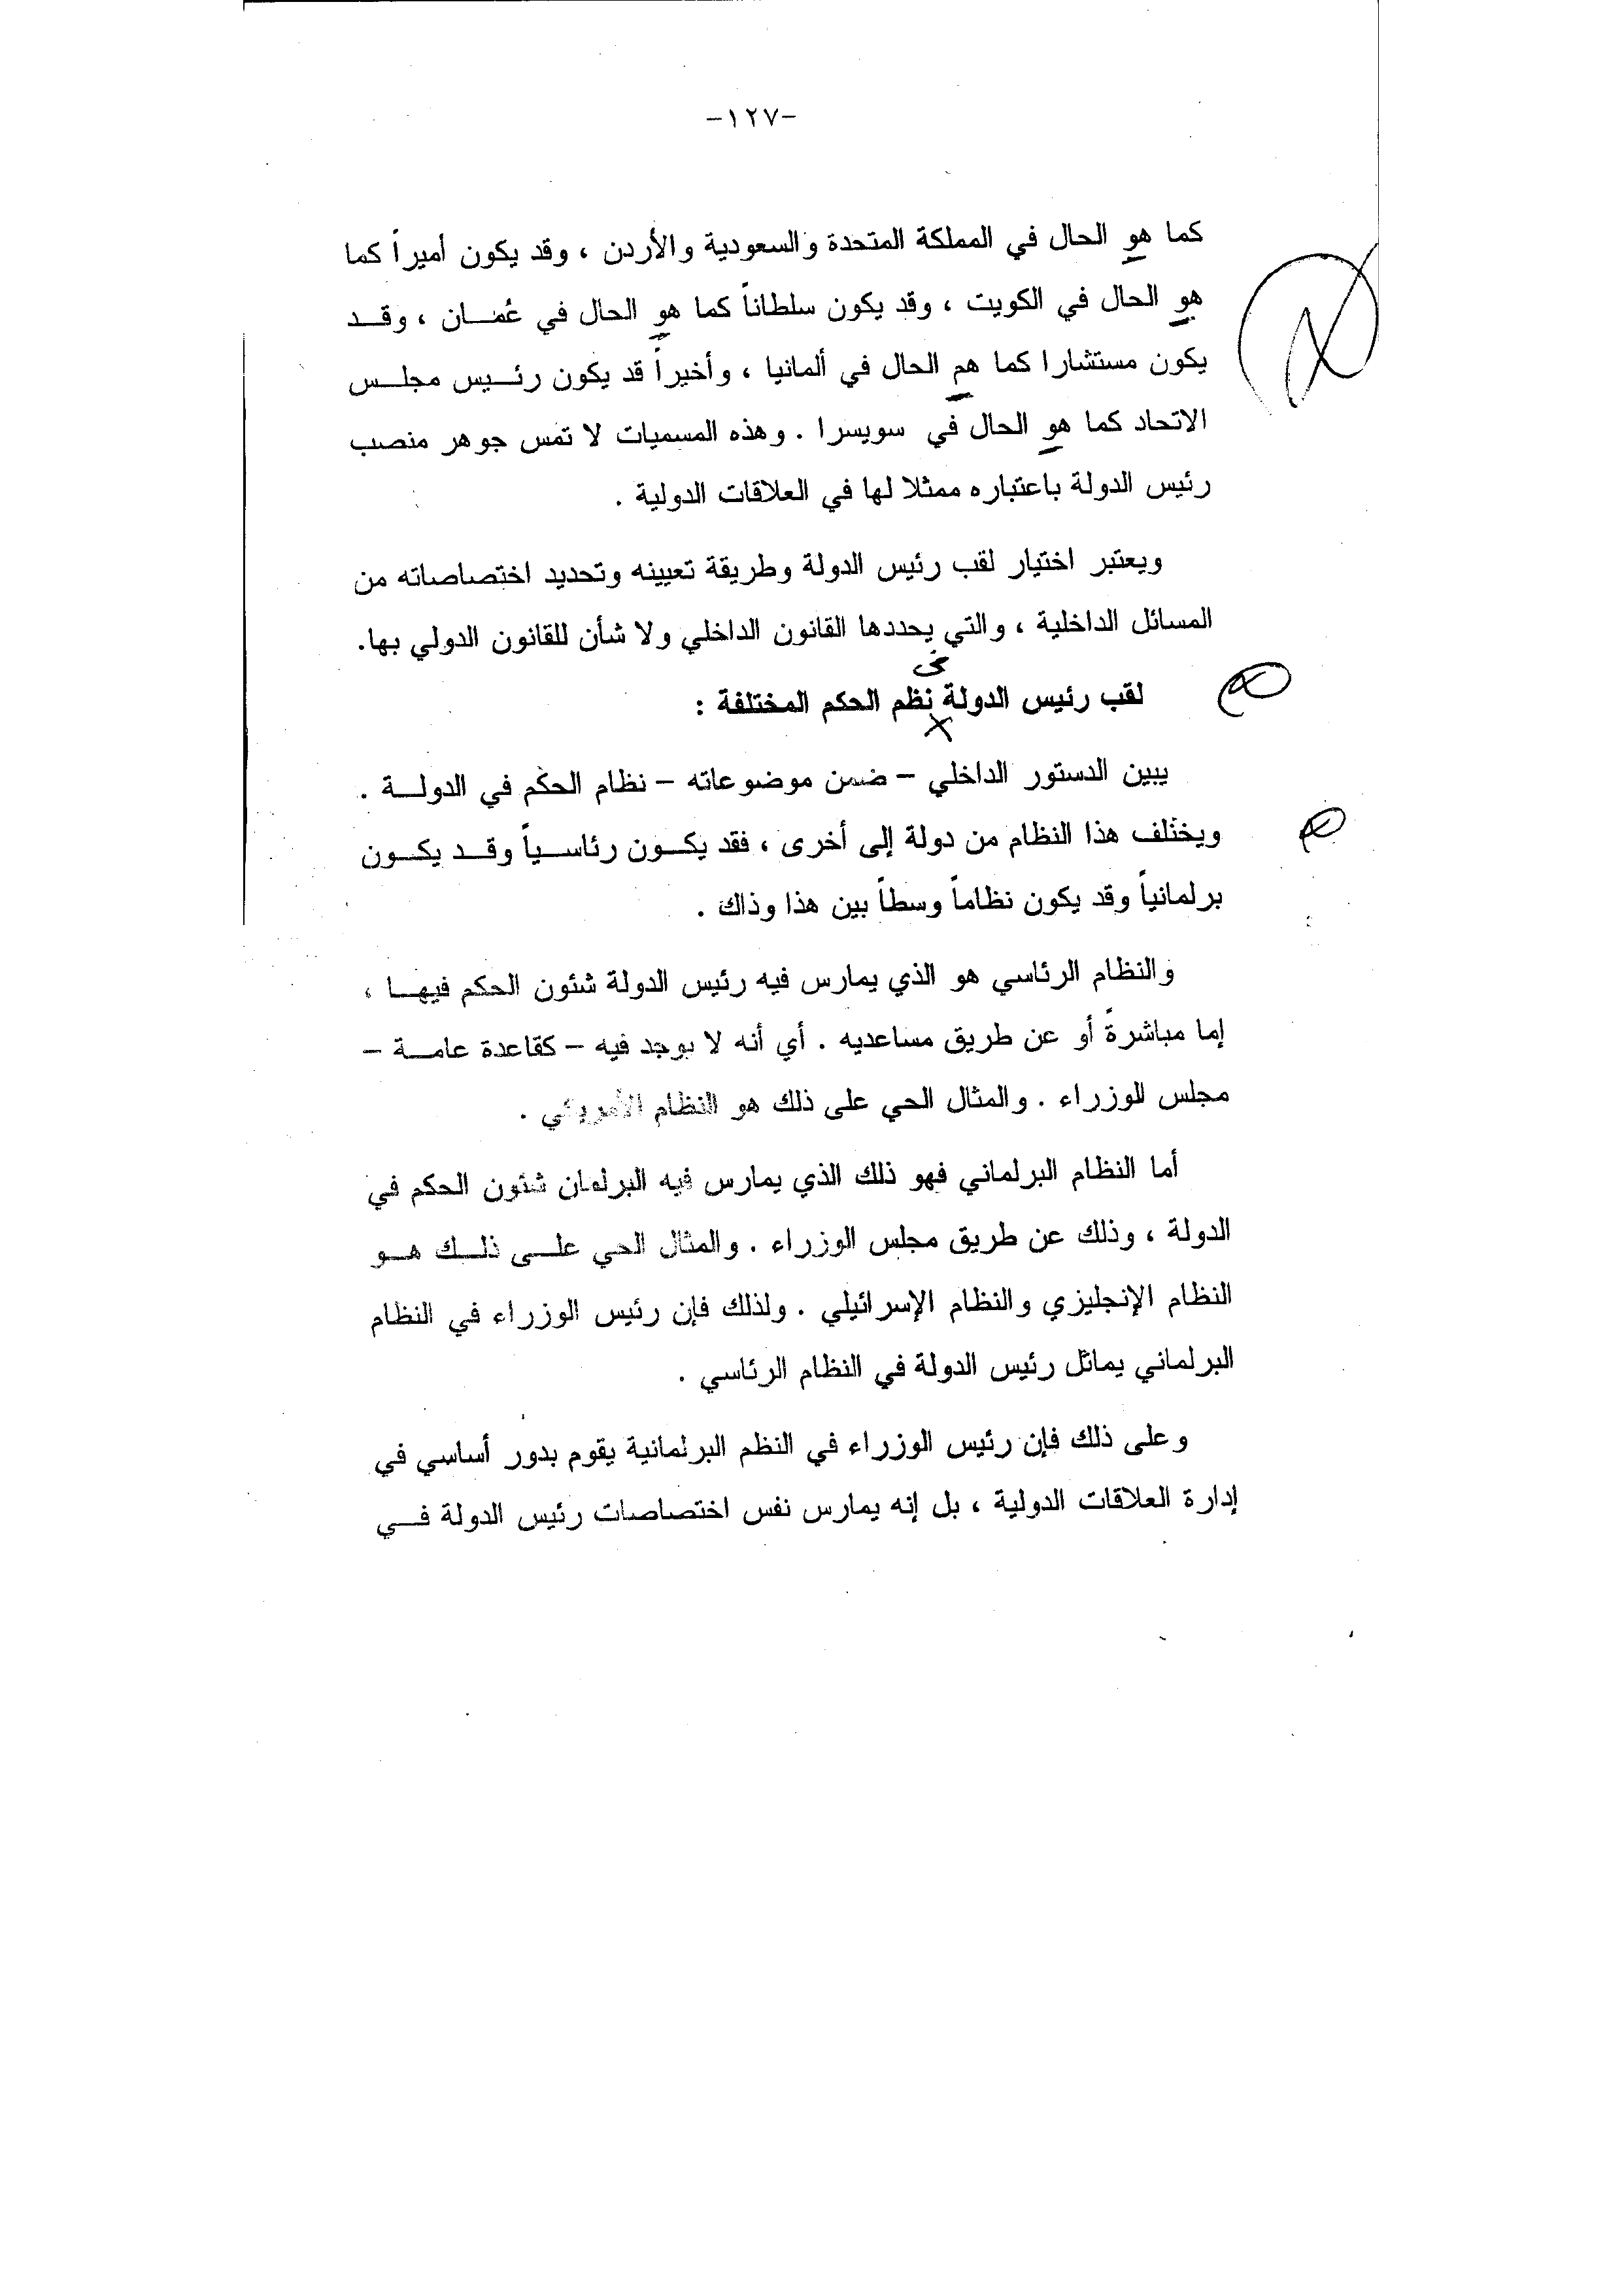 -١٢٧-
كما هو الحال في المملكة المتحدة والسعودية والأردن ، وقد يكون أميراً كما
هو الحال في الكويت ، وقد يكون سلطاناً كما هو الحال في عُمــان ، وقــد
يكون مستشارا كما هم الحال في ألمانيا ، وأخيراً قد يكون رئــيس مجلــس
الاتحاد كما هو الحال في سويسرا . وهذه المسميات لا تمس جوهر منصب
رئيس الدولة باعتباره ممثلا لها في العلاقات الدولية .
ويعتبر اختيار لقب رئيس الدولة وطريقة تعيينه وتحديد اختصاصاته من
المسائل الداخلية ، والتي يحددها القانون الداخلي ولا شأن للقانون الدولي بها.
لقب رئيس الدولة نظم الحكم المختلفة :
يبين الدستور الداخلي – ضمن موضوعاته – نظام الحكم في الدولــة .
ويختلف هذا النظام من دولة إلى أخرى ، فقد يكــون رئاســياً وقــد يكــون
برلمانياً وقد يكون نظاماً وسطاً بين هذا وذاك .
والنظام الرئاسي هو الذي يمارس فيه رئيس الدولة شئون الحكم فيهــا ،
إما مباشرةً أو عن طريق مساعديه . أي أنه لا يوجد فيه – كقاعدة عامــة –
مجلس للوزراء . والمثال الحي على ذلك هو النظام الأمريكي .
أما النظام البرلماني فهو ذلك الذي يمارس فيه البرلمان شئون الحكم في
الدولة ، وذلك عن طريق مجلس الوزراء . والمثال الحي علــى ذلــك هــو
النظام الإنجليزي والنظام الإسرائيلي . ولذلك فإن رئيس الوزراء في النظام
البرلماني يماثل رئيس الدولة في النظام الرئاسي .
وعلى ذلك فإن رئيس الوزراء في النظم البرلمانية يقوم بدور أساسي في
إدارة العلاقات الدولية ، بل إنه يمارس نفس اختصاصات رئيس الدولة فــي